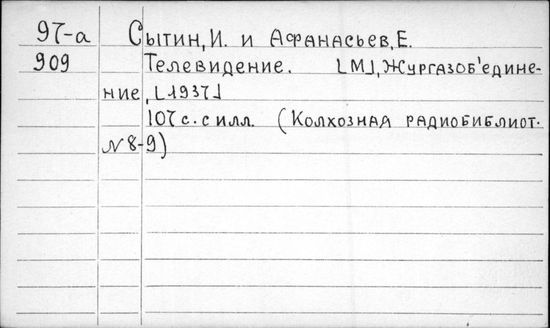 97-а Сытин, И. и Афанасьев, Е.
909 Телевидение. [М], Жургазоб'едине-
ние, [1937]
107 с. с илл. (Колхозная радиобиблиот.
N 8-9)